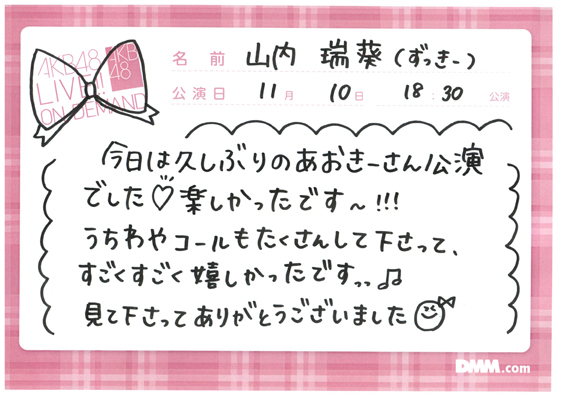 AKB48
LIVE!!
ON DEMAND
AKB
48
名 前 山内 瑞葵(ずっきー)
公演日 11月 10日 18:30 公演
今日は久しぶりのあおきーさん公演
でした♡楽しかったです〜!!!
うちわやコールもたくさんして下さって、
すごくすごく嬉しかったですっっ♫
見て下さってありがとうございました
DMM.com